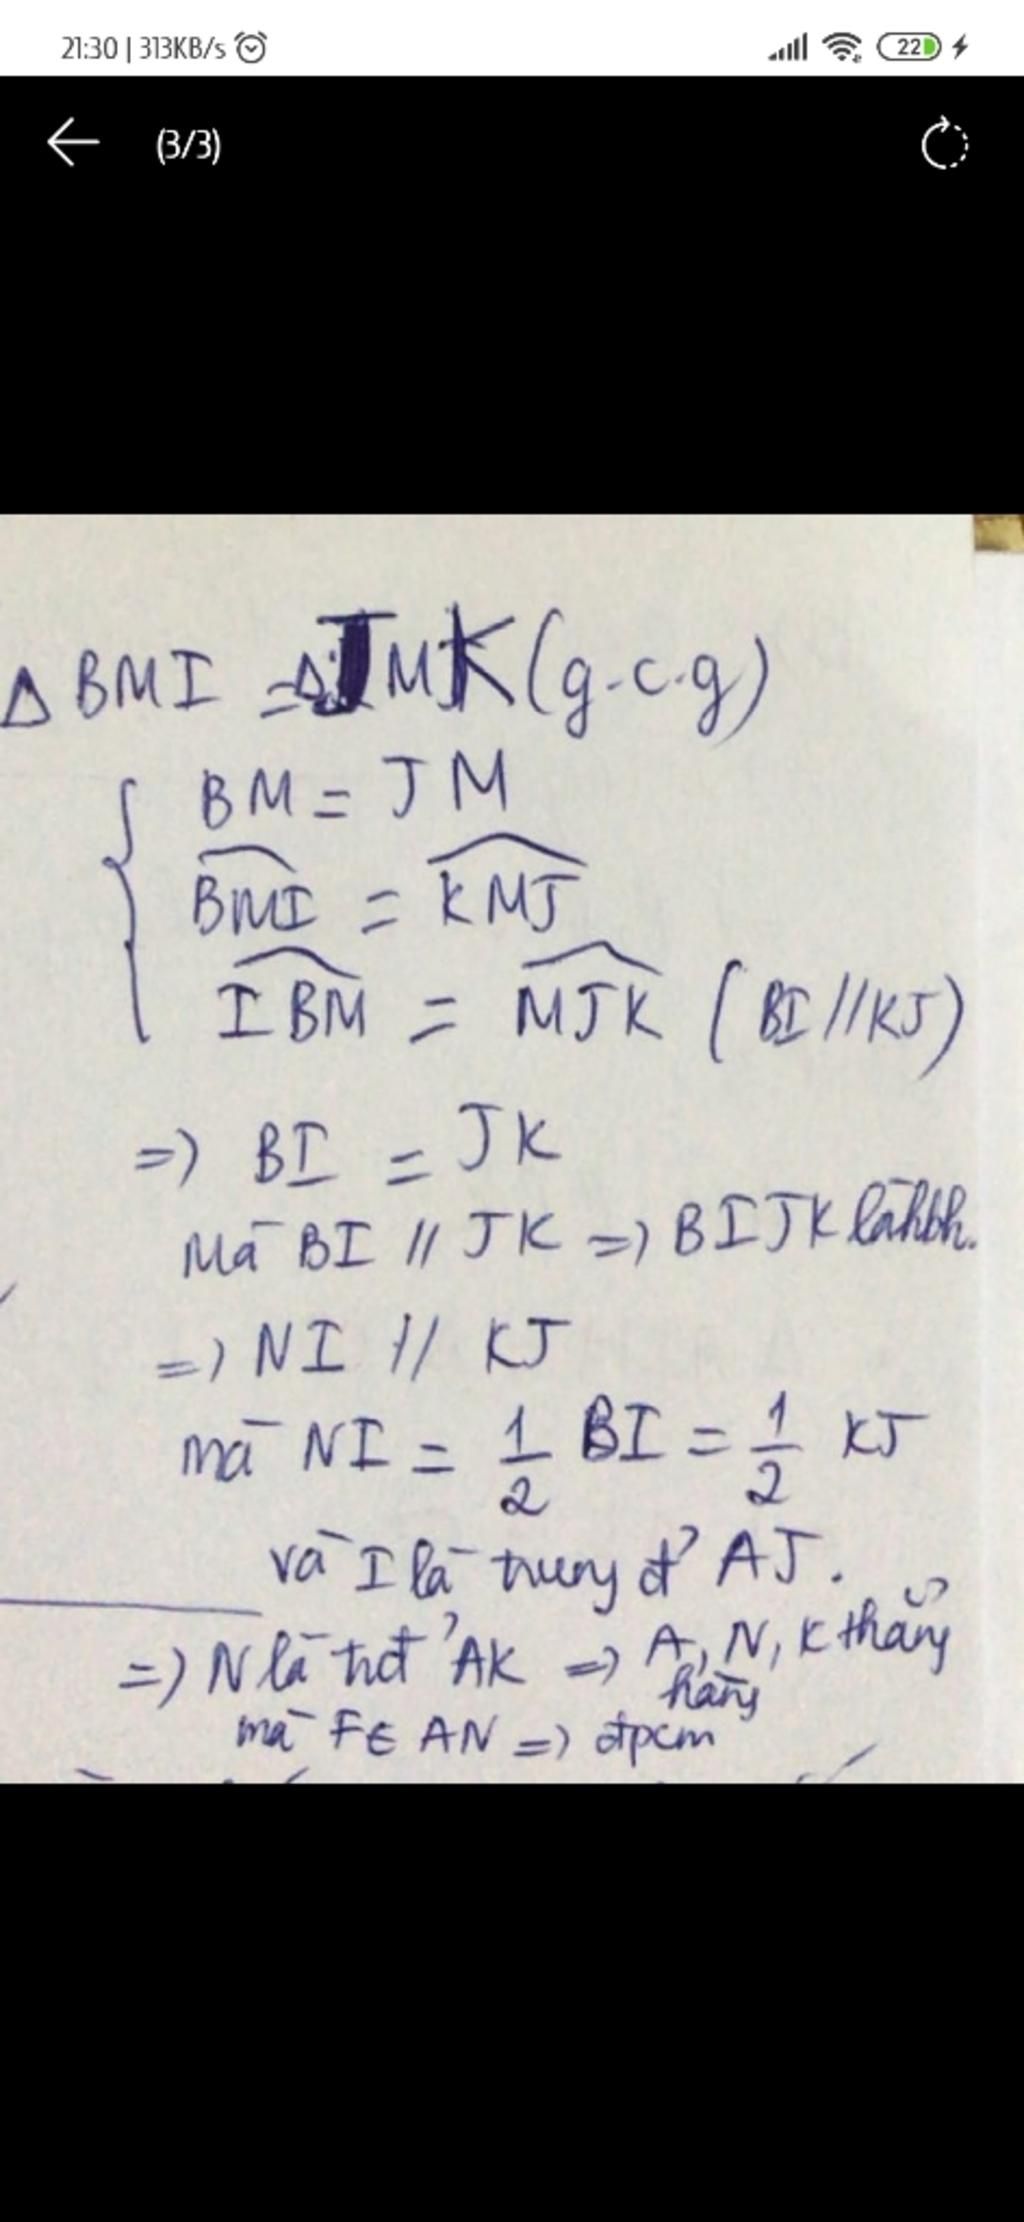 21:30 | 313KB/s
22
(3/3)
Δ BMI = Δ JMK (g.c.g)
BM = JM
BMI = KMJ
IBM = MJK (BI // KJ)
=) BI = JK
Mà BI // JK =) BIJK là hbh.
=) NI // KJ
mà NI = 1/2 BI = 1/2 KJ
và I là trung đ' AJ.
=) N là trđ' AK => A, N, K thẳng
hàng
mà F ∈ AN =) đpcm